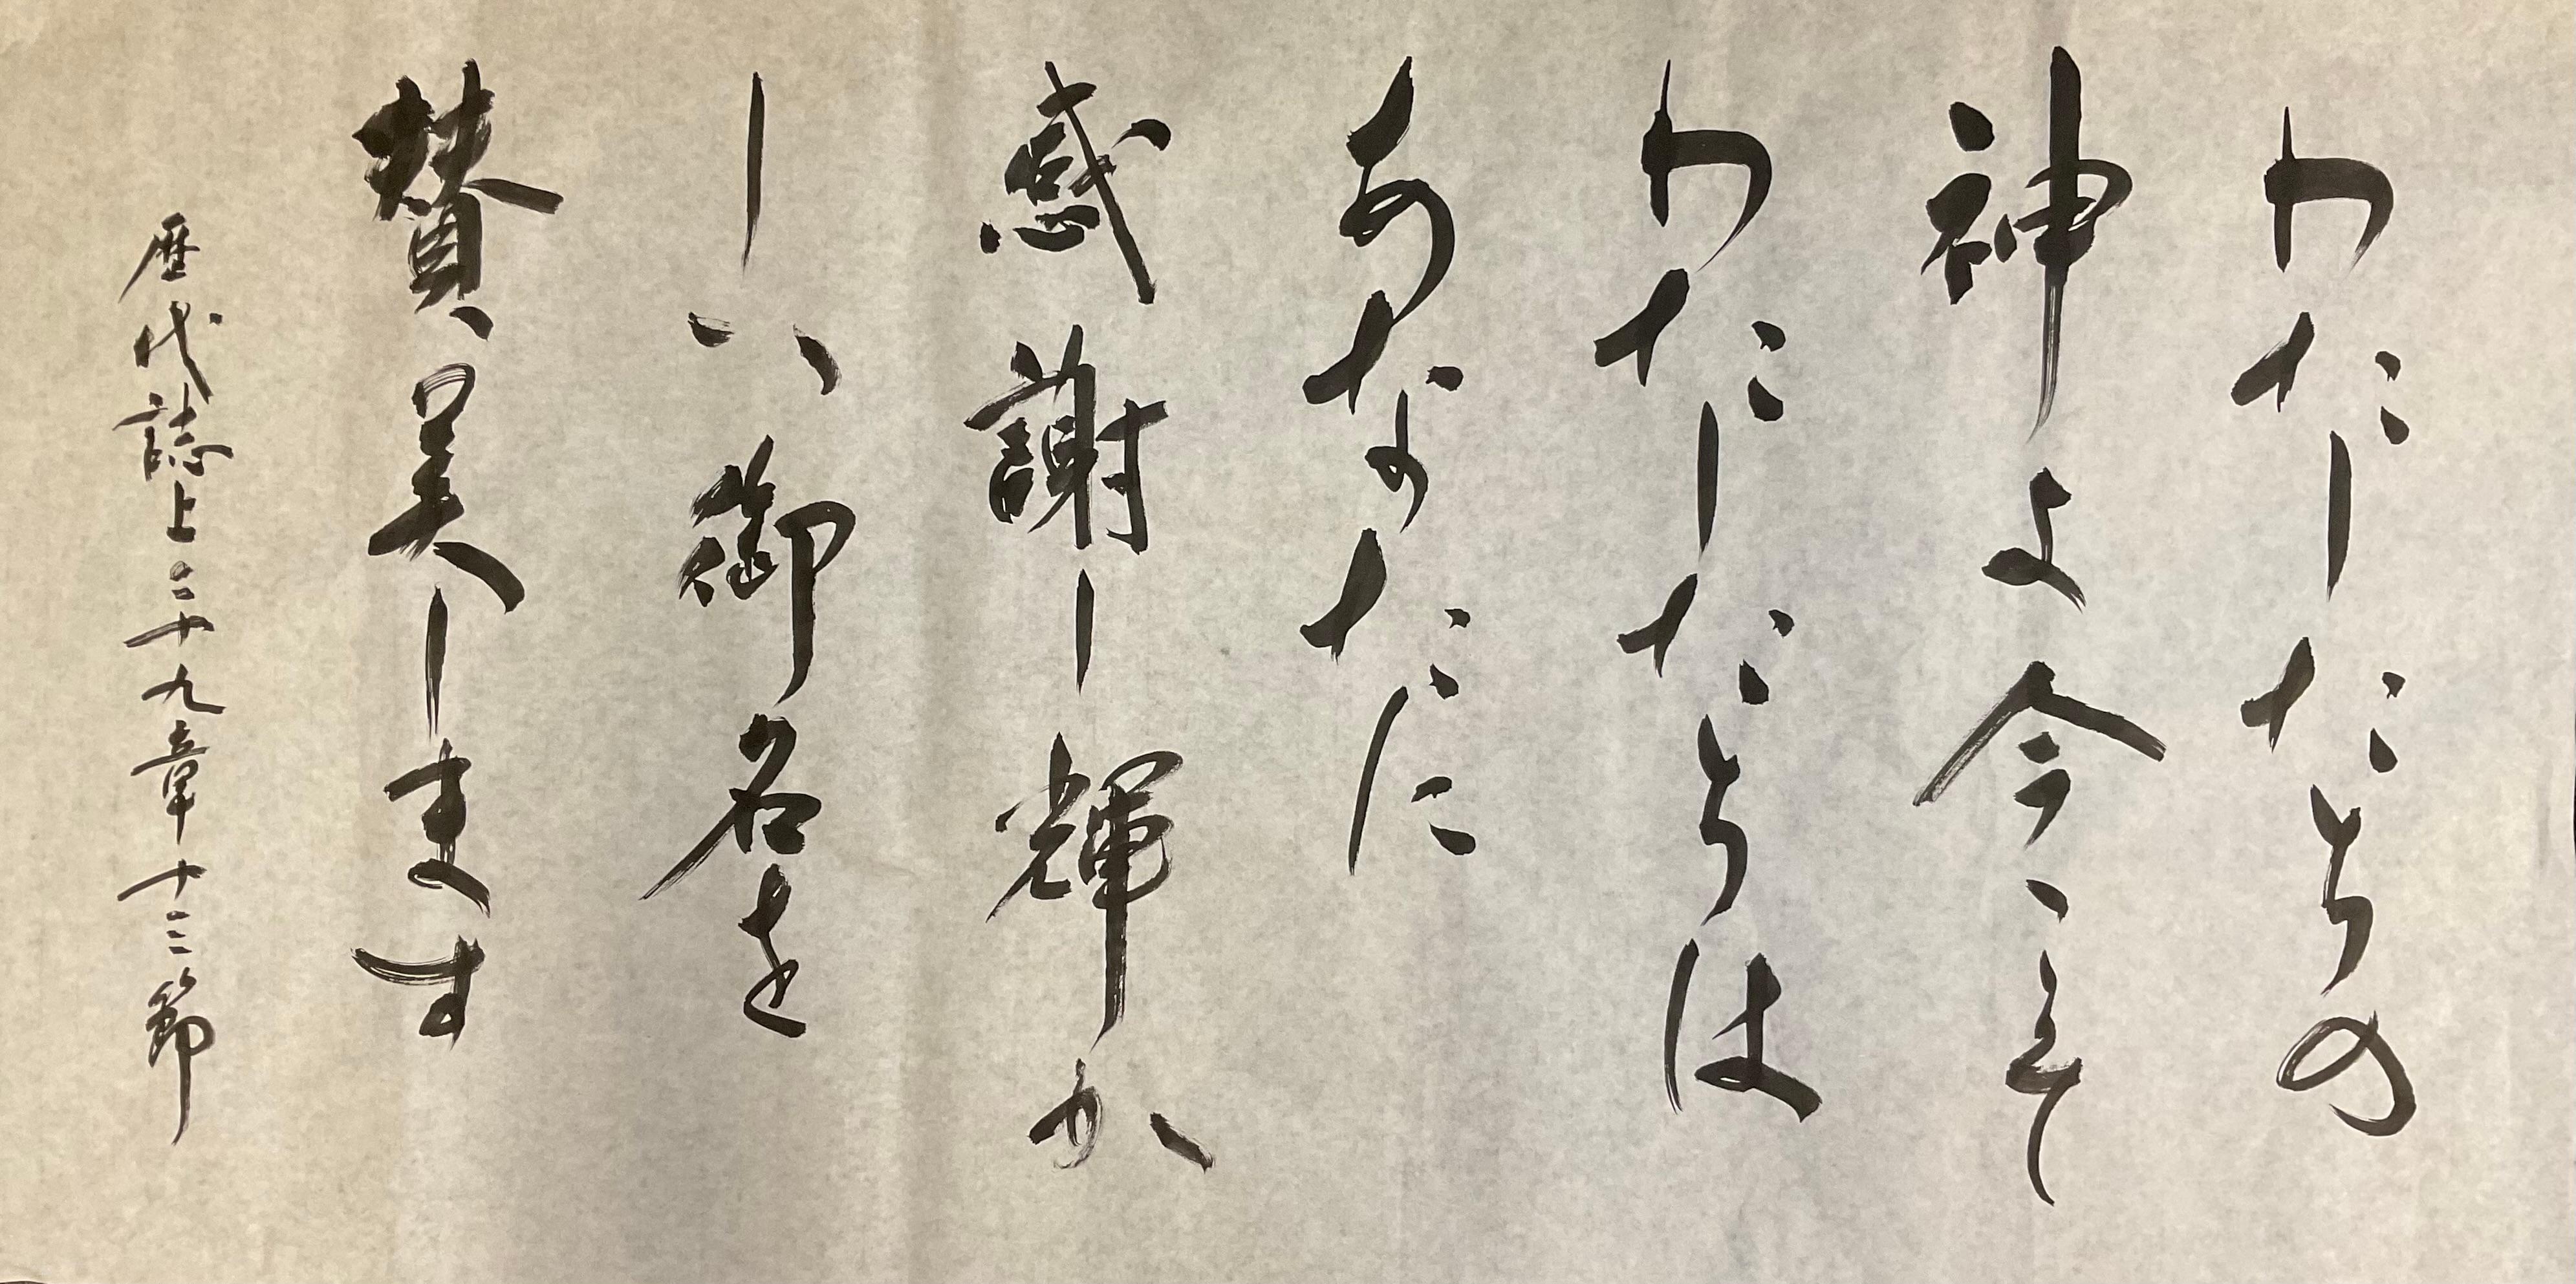 わたしたちの
神よ今こそ
わたしたちは
あなたに
感謝し輝か
しい御名を
賛美します
歴代誌上二十九章十三節